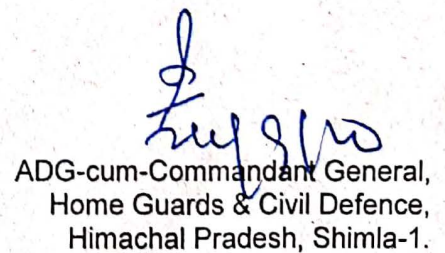 ADG-cum-Commandant General,
Home Guards & Civil Defence,
Himachal Pradesh, Shimla-1.